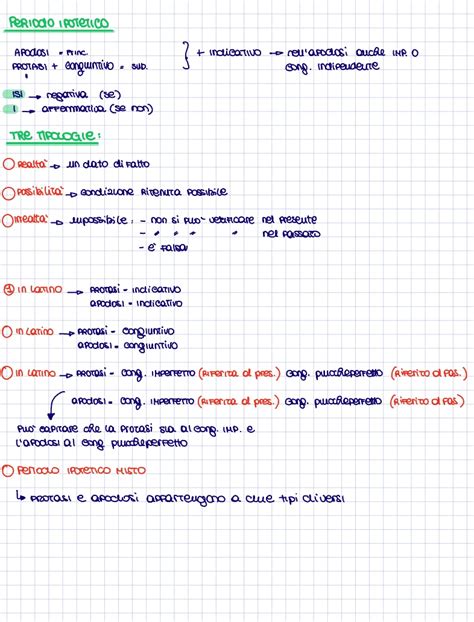 PERIODO IPOTETICO
APODOSI = PRINC.
PROTASI + CONGIUNTIVO = SUB.
} + INDICATIVO → NELL'APODOSI ANCHE IMP. O
CONG. INDIPENDENTE
ISI → NEGATIVA (SE)
I → AFFERMATIVA (SE NON)
TRE TIPOLOGIE:
REALTA' → UN DATO DI FATTO
POSSIBILITA' → CONDIZIONE RITENUTA POSSIBILE
IRREALTA' → IMPOSSIBILE: - NON SI PUO' VERIFICARE NEL PRESENTE
- " " " " NEL PASSATO
- E' FALSA
IN LATINO → PROTASI = INDICATIVO
APODOSI = INDICATIVO
IN LATINO → PROTASI = CONGIUNTIVO
APODOSI = CONGIUNTIVO
IN LATINO → PROTASI = CONG. IMPERFETTO (RIFERITA AL PRES.) CONG. PIUCCHEPERFETTO (RIFERITO AL PAS.)
APODOSI = CONG. IMPERFETTO (RIFERITA AL PRES.) CONG. PIUCCHEPERFETTO (RIFERITO AL PAS)
PUO' CAPITARE CHE LA PROTASI SIA AL CONG. IMP. E
L'APODOSI AL CONG. PIUCCHEPERFETTO
PERIODO IPOTETICO MISTO
↳ PROTASI E APODOSI APPARTENGONO A DUE TIPI DIVERSI